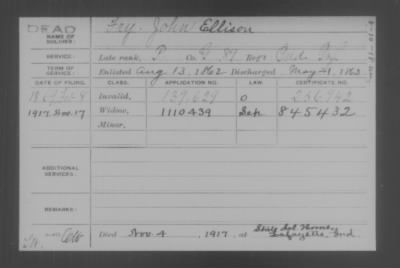 DEAD
NAME OF SOLDIER: Fry, John Ellison
SERVICE: Late rank, P Co. Reg't Ind. Inf.
TERM OF SERVICE: Enlisted Aug 13, 1862 Discharged May
DATE OF FILING. CLASS. APPLICATION NO. LAW. CERTIFICATE NO.
Invalid, 139,629 0
1917, Nov. 17 Widow, 1110439 Sep 845432
Minor,
ADDITIONAL SERVICES:
REMARKS:
Died Nov. 4, 1917, at State Sol. Home, Lafayette, Ind